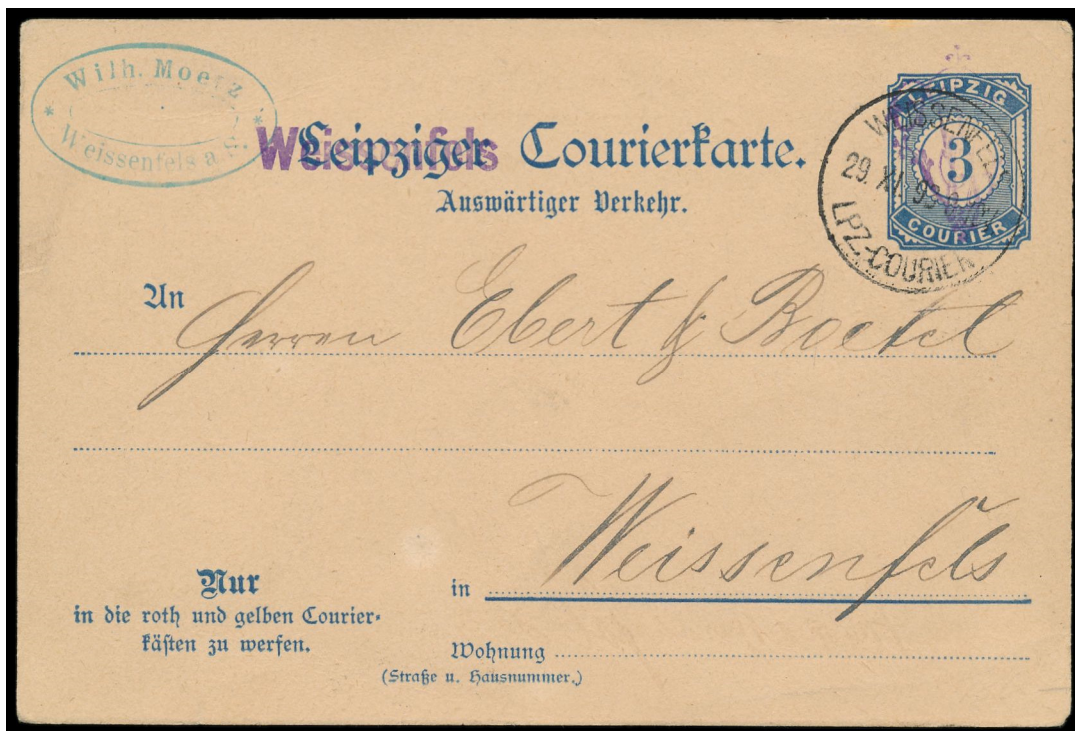 Wilh. Moerz
Weissenfels a. S.
Weissenfels
Leipziger Courierkarte.
Auswärtiger Verkehr.
LEIPZIG
3
COURIER
WEISSENFELS
29. XI. 93
LPZ.-COURIER
An Herren Ebert & Boetel
in Weissenfels
Nur
in die roth und gelben Courier-
käſten zu werfen.
Wohnung
(Straße u. Hausnummer.)